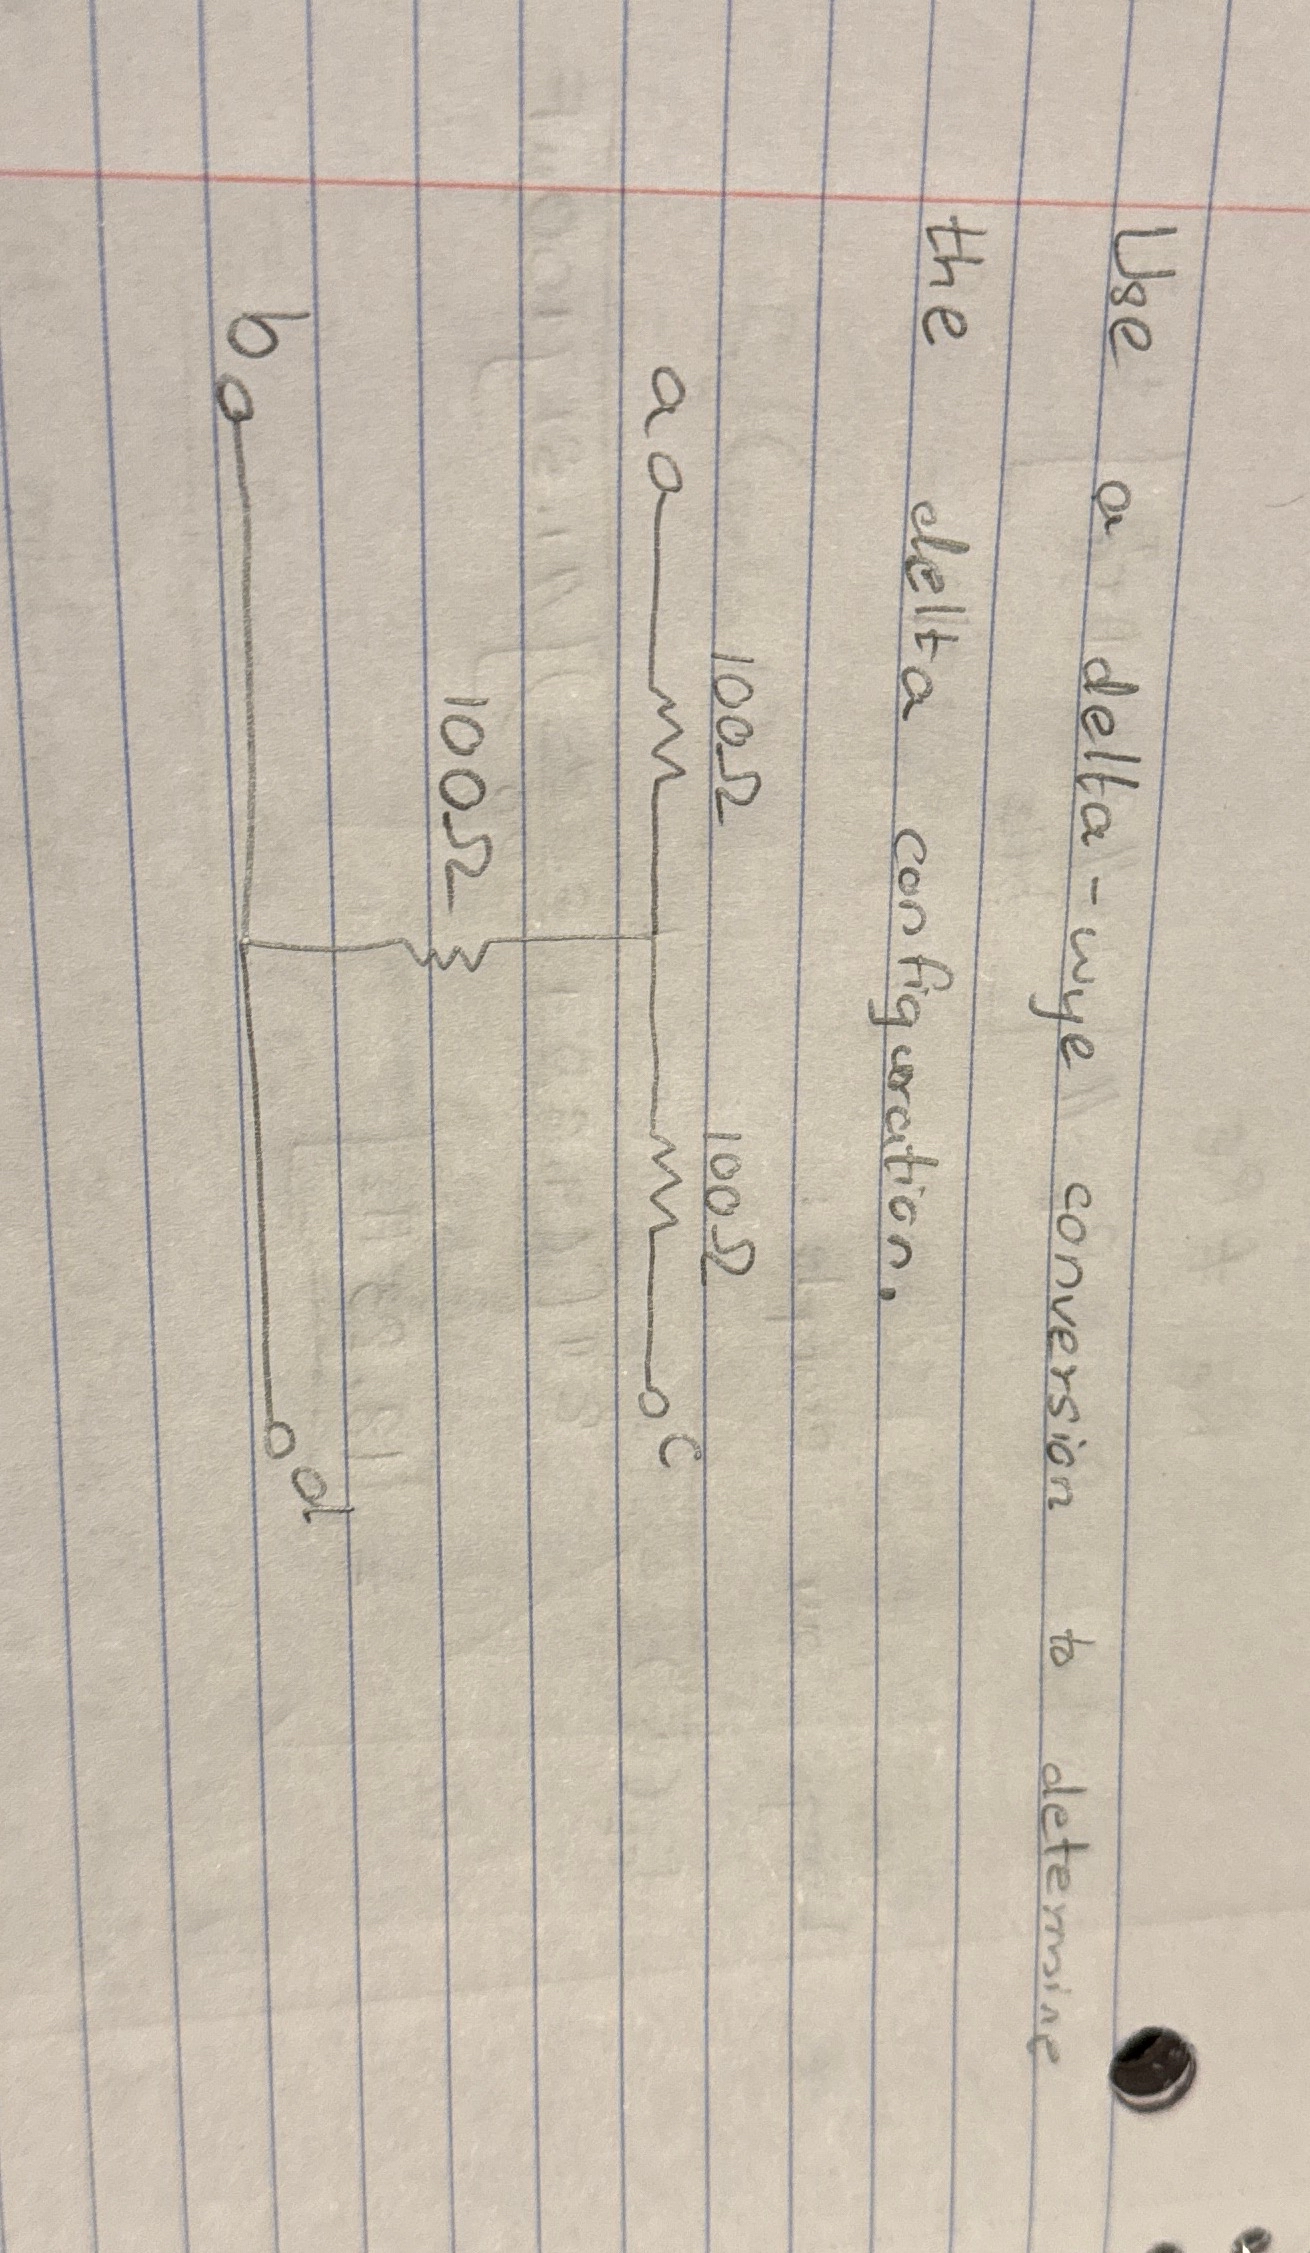 Use a delta-wye conversion to determine
the delta configuration.
100Ω 100Ω
a c
100Ω
b d